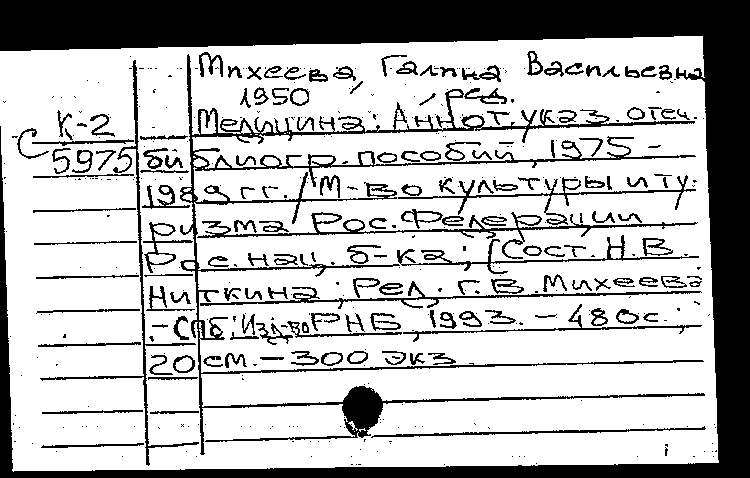 Михеева, Галина Васильевна
1950, ред.
К-2
С 5975
Медицина: Аннот. указ. отеч.
библиогр. пособий, 1975 -
1989 гг. / М-во культуры и ту-
ризма Рос. Федерации,
Рос. нац. б-ка; [Сост. Н.В.
Ниткина; Ред. Г.В. Михеева
. - СПб: Изд-во РНБ, 1993. - 480 с.;
20 см. - 300 экз